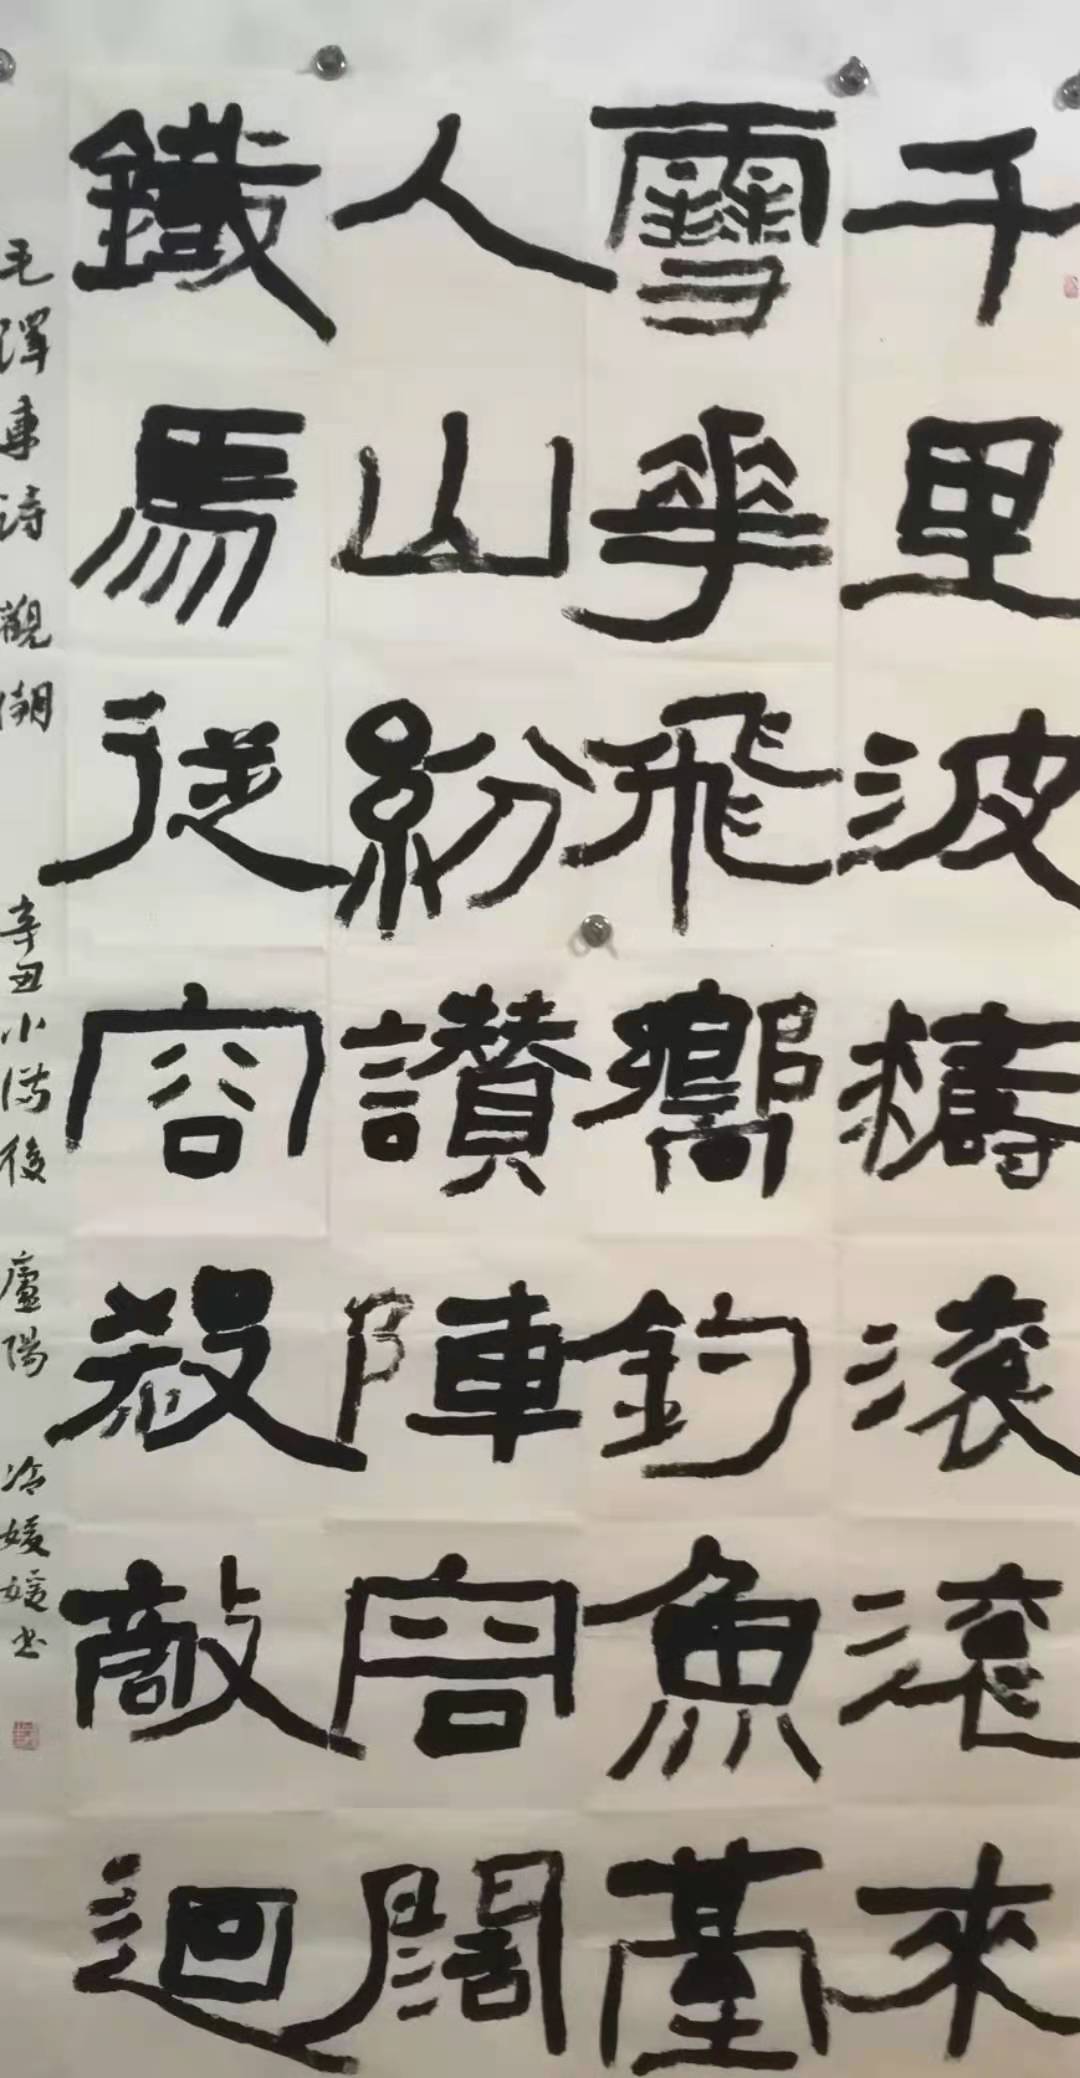 千里波濤滚滚來
雪華飛嚮釣魚臺
人山紛讚陣容闊
鐵馬從容殺敵迴
毛澤東詩 觀潮 辛丑小满後 廬陽 冷媛媛书